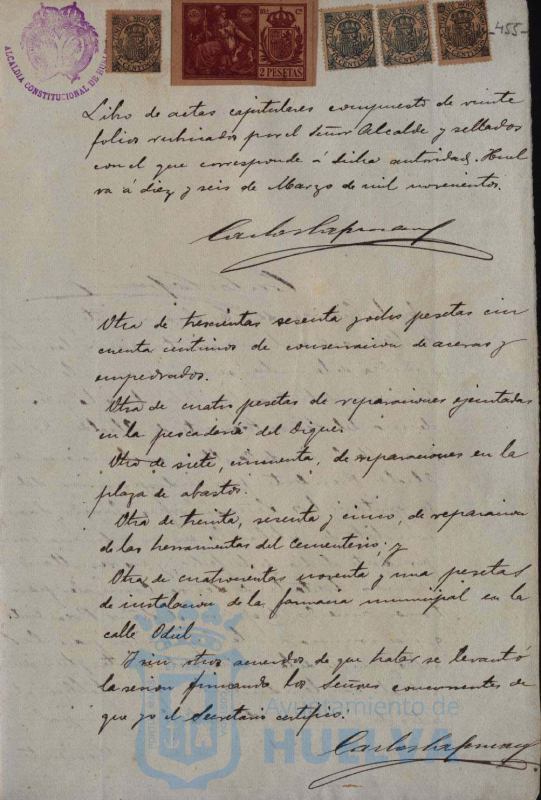 -455-
ALCALDIA CONSTITUCIONAL DE HUELVA
2 PESETAS
Libro de actas capitulares compuesto de veinte
folios rubricados por el Señor Alcalde y sellados
con el que corresponde á dicha autoridad. Huel
va á diez y seis de Marzo de mil novecientos.
Otra de trescientas sesenta y ocho pesetas cin
cuenta céntimos de conservacion de aceras y
empedrados.
Otra de cuatro pesetas de reparaciones ejecutadas
en la pescaderia del Dique.
Otra de siete, cincuenta, de reparaciones en la
plaza de abastos.
Otra de treinta, sesenta y cinco, de reparacion
de las herramientas del Cementerio; y
Otra de cuatrocientas noventa y una pesetas
de instalacion de la farmacia municipal en la
calle Odiel
Y sin otros acuerdos de que tratar se levantó
la sesion firmando los Señores concurrentes de
que yo el Secretario certifico.
Ayuntamiento de
HUELVA